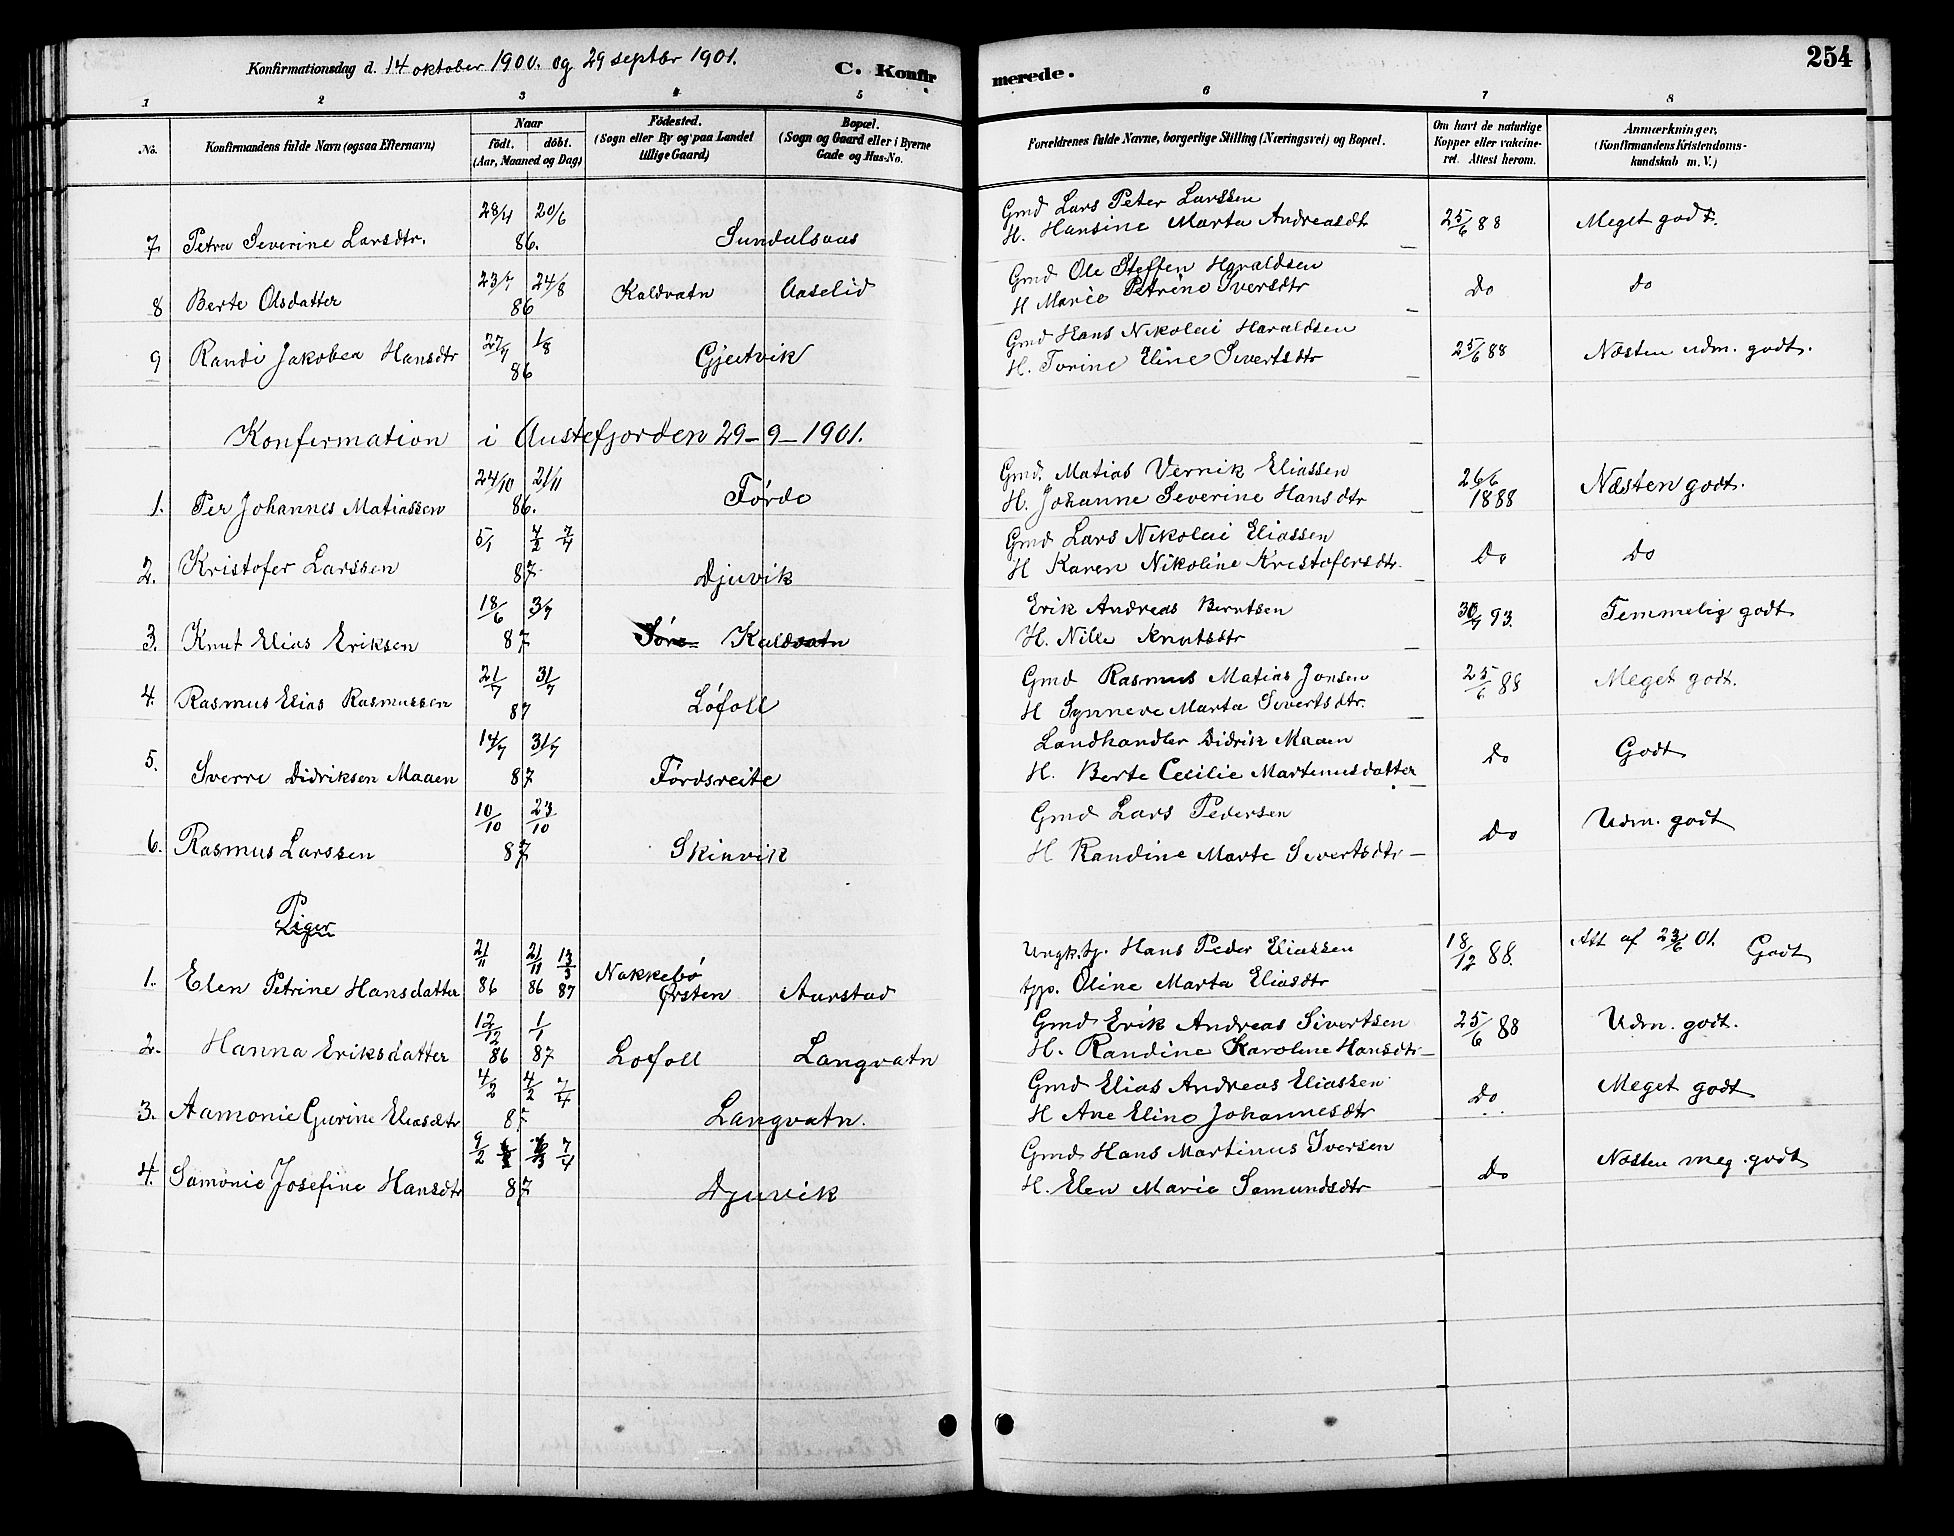 Konfirmationsdag d. 14 oktober 1900. og 29 septbr 1901.
C. Konfirmerede.
254
1 2 3 4 5 6 7 8
No.
Konfirmandens fulde Navn (ogsaa Efternavn)
Naar
födt. döbt.
(Aar, Maaned og Dag)
Födested.
(Sogn eller By og paa Landet
tillige Gaard)
Bopæl.
(Sogn og Gaard eller i Byerne
Gade og Hus-No.
Forældrenes fulde Navne, borgerlige Stilling (Næringsvei) og Bopæl.
Om havt de naturlige
Kopper eller vakcine-
ret. Attest herom.
Anmærkninger,
(Konfirmandens Kristendoms-
kundskab m. V.)
28/4 20/6 Gmd Lars Peter Larssen
7 Petra Severine Larsdtr. 86. Sundalsaas H. Hansine Marta Andreasdtr 25/6 88 Meget godt.
23/7 24/8 Gmd Ole Steffen Haraldsen
8 Berte Olsdatter 86 Kaldvatn Aaselid H Marie Petrine Iversdtr Do Do
27/7 1/8 Gmd Hans Nikolai Haraldsen
9 Randi Jakobea Hansdtr 86 Gjeitvik H. Torine Eline Sivertsdtr 25/6 88 Næsten udm. godt.
Konfirmation i Austefjorden 29-9-1901.
24/10 21/11 Gmd. Matias Vernik Eliassen
1. Per Johannes Matiassen 86. Førde H. Johanne Severine Hansdtr 26/6 1888 Næsten godt.
5/1 4/2 7/4 Gmd Lars Nikolai Eliassen
2. Kristofer Larssen 87 Djuvik H Karen Nikoline Kristofersdtr. Do Do
18/6 3/7 Erik Andreas Berntsen
3. Knut Elias Eriksen 87 Kaldvatn H. Nille Knutsdtr 30/7 93. Temmelig godt
21/7 31/7 Gmd Rasmus Matias Jonsen
4. Rasmus Elias Rasmussen 87 Løfoll H Synneve Marta Sivertsdtr. 25/6 88 Meget godt.
14/7 31/7 Landhandler Didrik Maaen
5. Sverre Didriksen Maaen 87 Førdsreite H. Berte Cecilie Martinusdatter Do Godt
10/10 23/10 Gmd Lars Pedersen
6. Rasmus Larssen 87 Skinvik H Randine Marte Sivertsdtr Do Udm. godt
Piger
2/11 21/11 13/3 Ungk. tj. Hans Peder Eliassen
1. Elen Petrine Hansdatter 86 86 87 Nakkebø Ørsten Aurstad Oline Marta Eliasdtr 18/12 88. Att af 23/6 01. Godt
12/12 1/1 Gmd Erik Andreas Sivertsen
2. Hanna Eriksdatter 86 87 Løfoll Langvatn H. Randine Karoline Hansdtr 25/6 88 Udm. godt.
4/2 4/2 7/4 Gmd Elias Andreas Eliassen
3. Aamonie Gurine Eliasdtr 87 Langvatn. H Ane Eline Johannesdtr Do Meget godt
9/2 7/4 Gmd Hans Martinus Iversen
4. Samonie Josefine Hansdtr 87 Djuvik H. Elen Marie Samundsdtr Do Næsten meg. godt